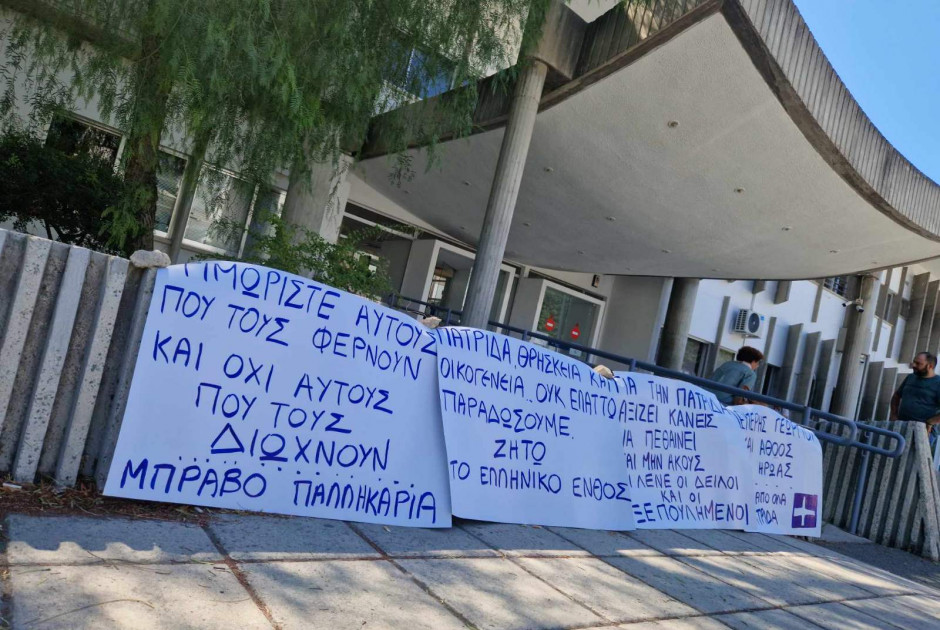 ΤΙΜΩΡΙΣΤΕ ΑΥΤΟΥΣ
ΠΟΥ ΤΟΥΣ ΦΕΡΝΟΥΝ
ΚΑΙ ΟΧΙ ΑΥΤΟΥΣ
ΠΟΥ ΤΟΥΣ
ΔΙΩΧΝΟΥΝ
ΜΠΡΑΒΟ ΠΑΛΛΗΚΑΡΙΑ
ΠΑΤΡΙΔΑ, ΘΡΗΣΚΕΙΑ
ΟΙΚΟΓΕΝΕΙΑ.. ΟΥΚ ΕΛΑΤΤΟ
ΠΑΡΑΔΩΣΟΥΜΕ.
ΖΗΤΩ
ΤΟ ΕΛΛΗΝΙΚΟ ΕΝΘΟΣ
ΓΙΑ ΤΗΝ ΠΑΤΡΙΔΑ
ΑΞΙΖΕΙ ΚΑΝΕΙΣ
ΝΑ ΠΕΘΑΙΝΕΙ
ΚΑΙ ΜΗΝ ΑΚΟΥΣ
ΛΕΝΕ ΟΙ ΔΕΙΛΟΙ
ΚΑΙ ΟΙ
ΞΕΠΟΥΛΗΜΕΝΟΙ
ΓΕΩΡΓΙΟΥ
ΑΘΩΟΣ
ΗΡΩΑΣ
ΑΠΟ ΟΛΑ